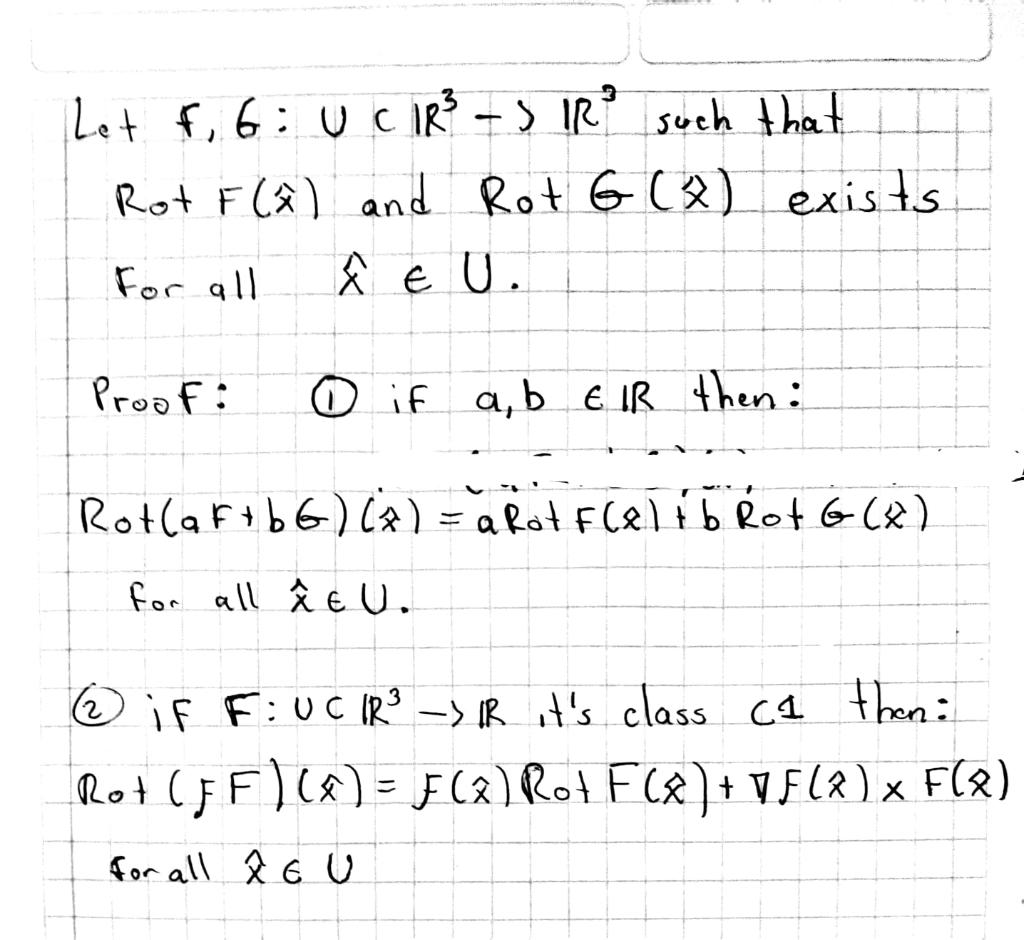 Let f, G: U ⊂ ℝ³ -> ℝ³ such that
Rot F(x̂) and Rot G(x̂) exists
For all x̂ ∈ U.
Proof: ① if a,b ∈ ℝ then:
Rot(aF+bG)(x̂) = a Rot F(x̂) + b Rot G(x̂)
for all x̂ ∈ U.
② if F: U ⊂ ℝ³ -> ℝ it's class C1 then:
Rot (fF)(x̂) = f(x̂) Rot F(x̂) + ∇f(x̂) × F(x̂)
for all x̂ ∈ U